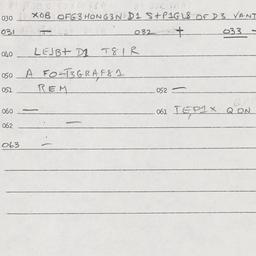 030 XOB OFG3HONG3N D1 S+P1GL8 OF D3 VANT
031 — 032 + 033 –
040 LEJB+ D1 T81R
050 A FO-T3GRAF81
051 REM 052 —
060 — 061 TEP1X QON
062 —
063 —